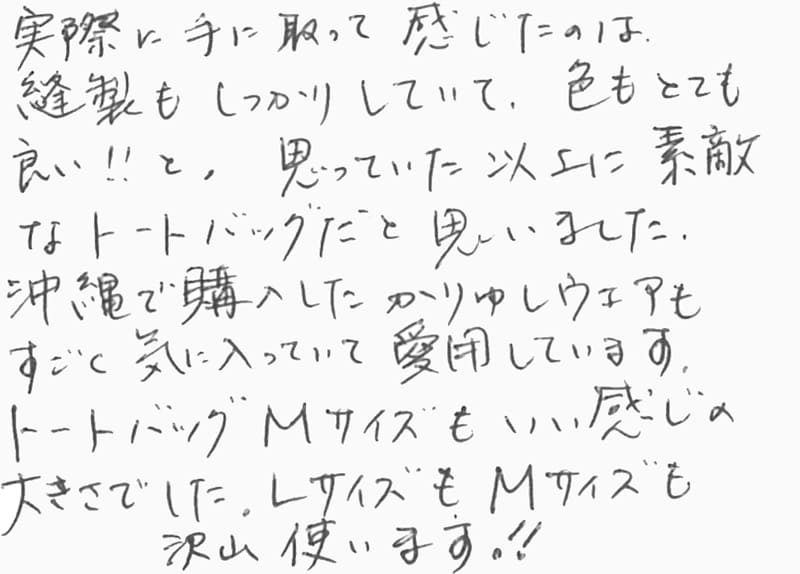 実際に手に取って感じたのは、
縫製もしっかりしていて、色もとても
良い!!と、思っていた以上に素敵
なトートバッグだと思いました。
沖縄で購入したかりゆしウェアも
すごく気に入っていて愛用しています。
トートバッグMサイズもいい感じの
大きさでした。LサイズもMサイズも
沢山使います。!!